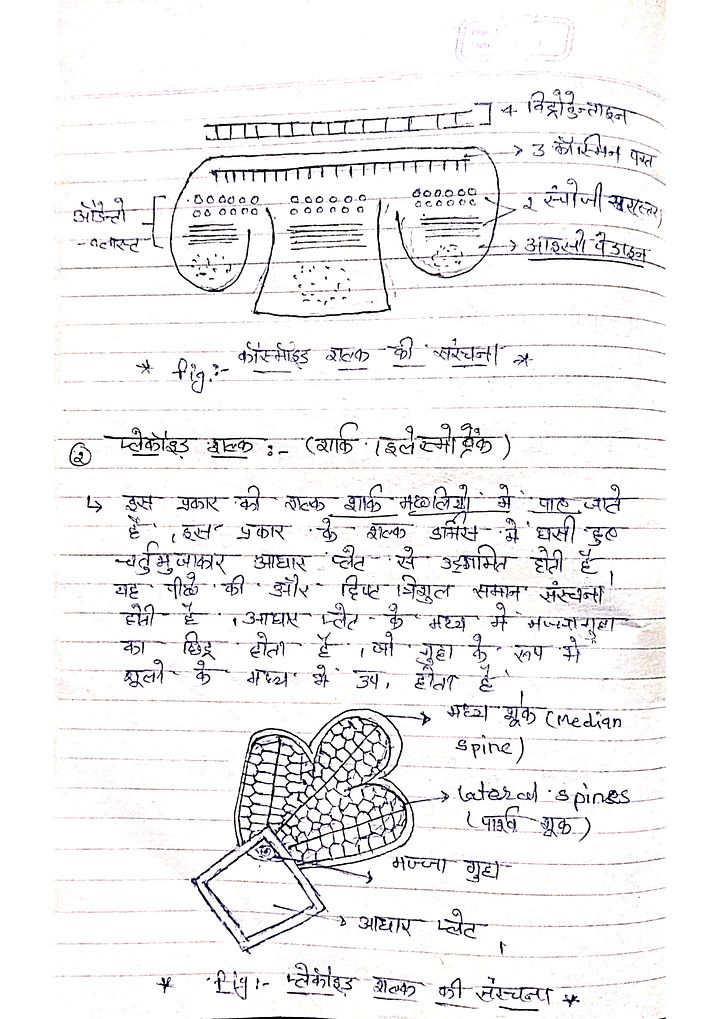 4 विट्रोडेन्टाइन
→ 3 कॉस्मिन परत
ऑडेन्टो
- ब्लास्ट
2 स्पंजी
→ आइसोपेडाइन
* fig:- कॉस्मॉइड शल्क की संरचना *
② प्लेकॉइड शल्क :- (शार्क । इलेस्मोब्रैंक)
↳ इस प्रकार की शल्क शार्क मछलियों में पाए जाते
है ,इस प्रकार के शल्क डर्मिस में धसी हुए
चर्तुभुजाकार आधार प्लैट से उद्गमित होती है ,
यह पीछे की और दिष्ट त्रिशुल समान संरचना
होती है ,आधार प्लेट के मध्य में मज्जा गुहा
का छिद्र होता है ,जो गुहा के रूप में
शूलो के मध्य में उप, होता है
→ मध्य शूक (Median
spine)
→ lateral spines
(पार्श्व शूक)
→ मज्जा गुहा
→ आधार प्लेट ,
* fig:- प्लेकॉइड शल्क की संरचना *